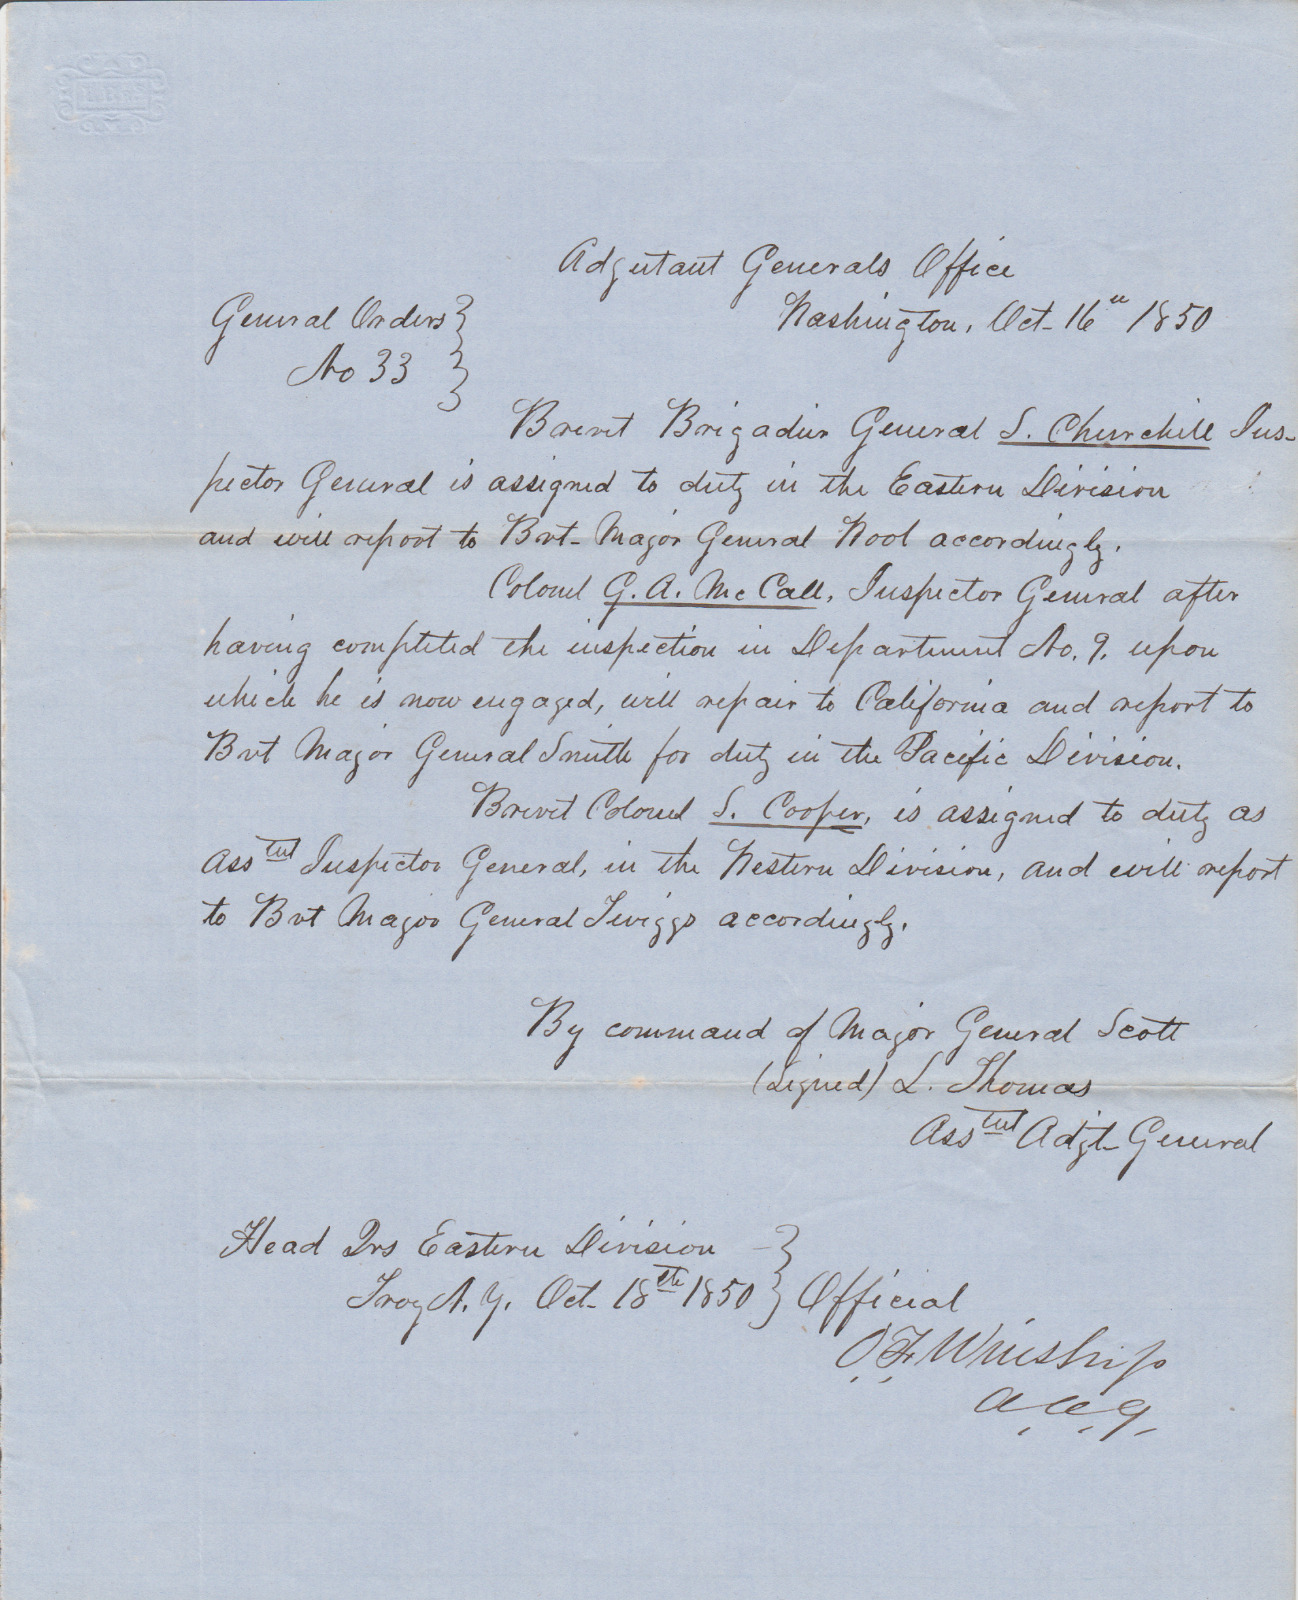 Adjutant Generals Office
Washington, Oct. 16th 1850
General Orders
No 33
Brevet Brigadier General S. Churchill Ins-
pector General is assigned to duty in the Eastern Division
and will report to Bvt. Major General Wool accordingly.
Colonel G. A. McCall, Inspector General after
having completed the inspection in Department No. 9, upon
which he is now engaged, will repair to California and report to
Bvt Major General Smith for duty in the Pacific Division.
Brevet Colonel S. Cooper, is assigned to duty as
Asstnt Inspector General, in the Western Division, and will report
to Bvt Major General Twiggs accordingly.
By command of Major General Scott
(Signed) L. Thomas
Asstnt Adjt. General
Head Qrs Eastern Division
Troy N. Y. Oct. 18th 1850 } Official
O. F. Winship
A. A. G.